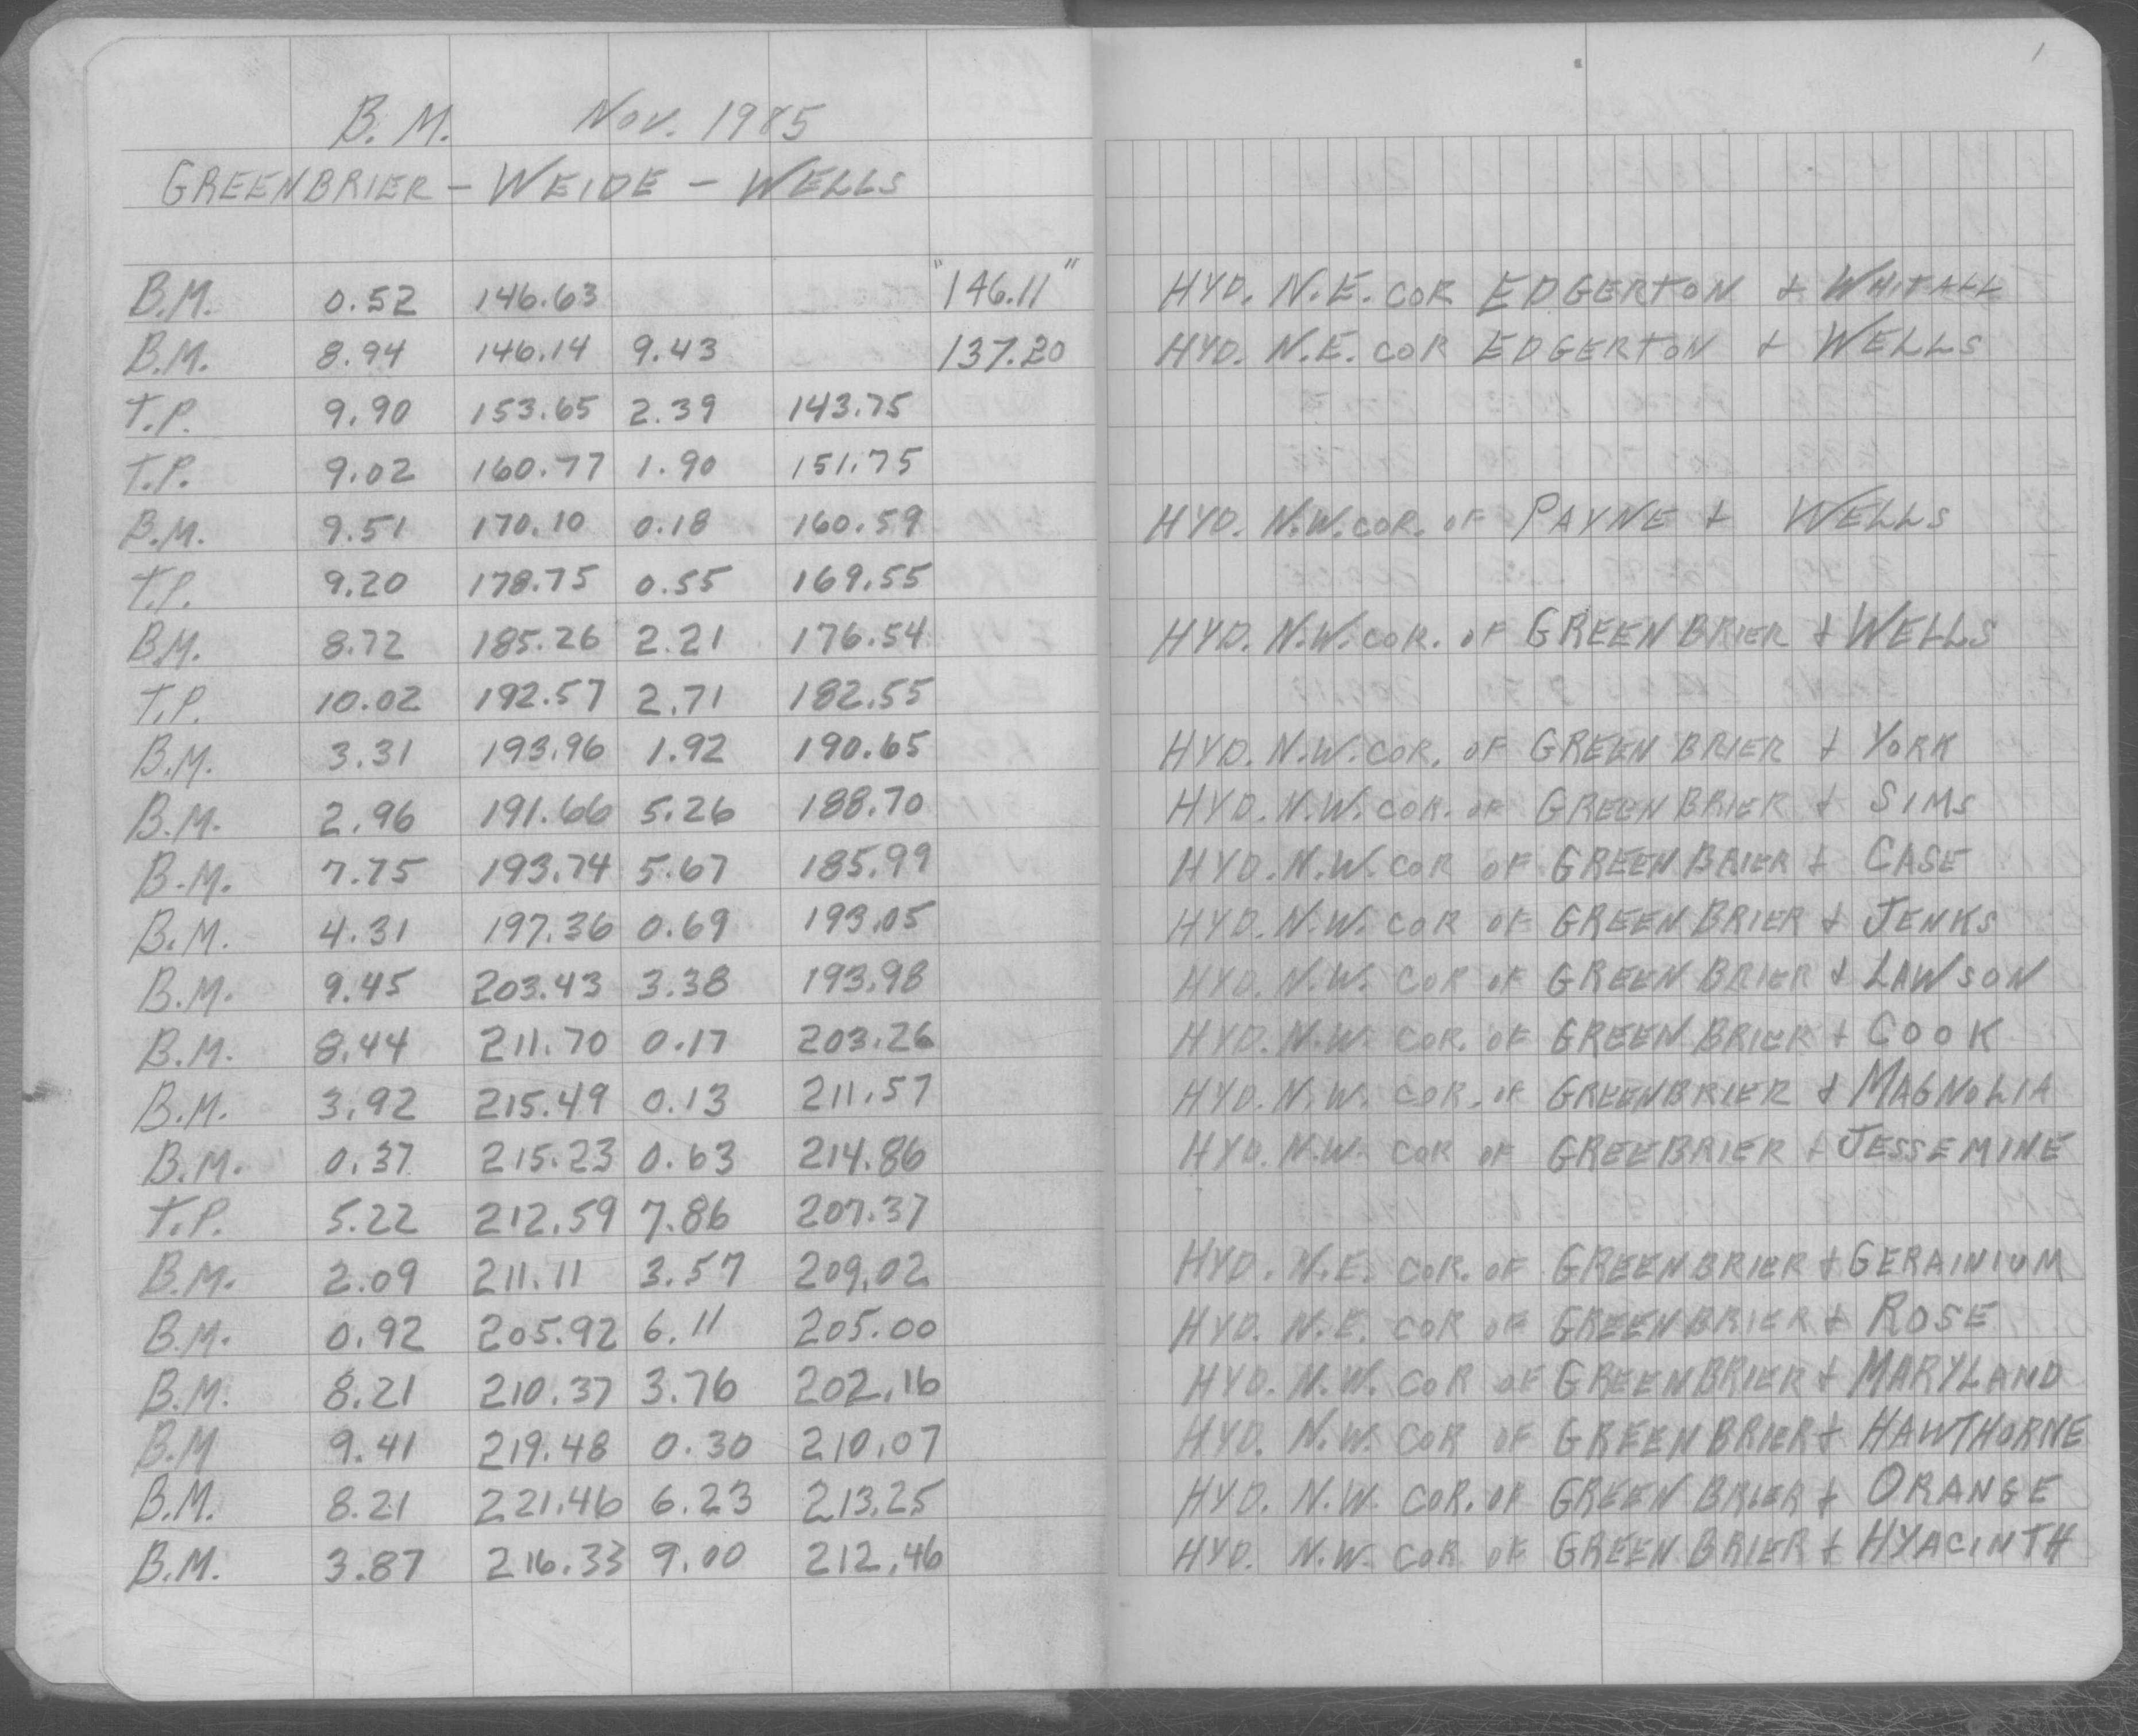 1
B.M. Nov. 1985
GREENBRIER - WEIDE - WELLS
B.M. 0.52 146.63 "146.11" HYD. N.E. COR EDGERTON & WHITALL
B.M. 8.94 146.14 9.43 137.20 HYD. N.E. COR EDGERTON & WELLS
T.P. 9.90 153.65 2.39 143.75
T.P. 9.02 160.77 1.90 151.75
B.M. 9.51 170.10 0.18 160.59 HYD. N.W. COR. OF PAYNE & WELLS
T.P. 9.20 178.75 0.55 169.55
B.M. 8.72 185.26 2.21 176.54 HYD. N.W. COR. OF GREENBRIER & WELLS
T.P. 10.02 192.57 2.71 182.55
B.M. 3.31 193.96 1.92 190.65 HYD. N.W. COR. OF GREENBRIER & YORK
B.M. 2.96 191.66 5.26 188.70 HYD. N.W. COR. OF GREENBRIER & SIMS
B.M. 7.75 193.74 5.67 185.99 HYD. N.W. COR OF GREENBRIER & CASE
B.M. 4.31 197.36 0.69 193.05 HYD. N.W. COR OF GREENBRIER & JENKS
B.M. 9.45 203.43 3.38 193.98 HYD. N.W. COR OF GREENBRIER & LAWSON
B.M. 8.44 211.70 0.17 203.26 HYD. N.W. COR. OF GREENBRIER & COOK
B.M. 3.92 215.49 0.13 211.57 HYD. N.W. COR. OF GREENBRIER & MAGNOLIA
B.M. 0.37 215.23 0.63 214.86 HYD. N.W. COR OF GREEBRIER & JESSEMINE
T.P. 5.22 212.59 7.86 207.37
B.M. 2.09 211.11 3.57 209.02 HYD. N.E. COR. OF GREENBRIER & GERAINIUM
B.M. 0.92 205.92 6.11 205.00 HYD. N.E. COR OF GREENBRIER & ROSE
B.M. 8.21 210.37 3.76 202.16 HYD. N.W. COR OF GREENBRIER & MARYLAND
B.M 9.41 219.48 0.30 210.07 HYD. N.W. COR OF GREENBRIER & HAWTHORNE
B.M. 8.21 221.46 6.23 213.25 HYD. N.W. COR. OF GREENBRIER & ORANGE
B.M. 3.87 216.33 9.00 212.46 HYD. N.W. COR OF GREENBRIER & HYACINTH